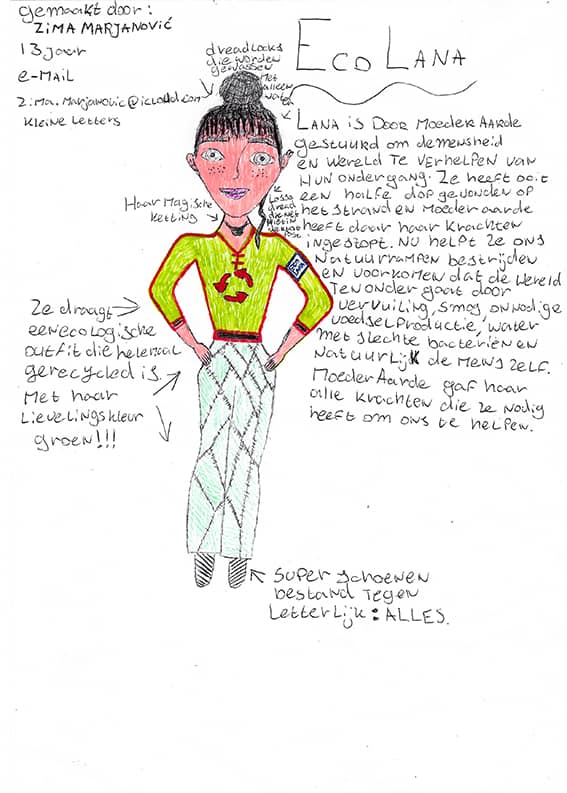 gemaakt door:
ZiMA MARJANOVIĆ
13 jaar
e-MAiL
Zima.Marjanovic@icloud.com
kleine Letters
dreadlocks
die worden
gewassen
Met
alleen
water
ECO LANA
LANA is Door Moeder Aarde
gestuurd om de mensheid
en wereld te verhelpen van
Hun ondergang. Ze heeft ooit
een halfe dop gevonden op
het strand en Moeder aarde
heeft daar haar krachten
ingestopt. Nu helpt ze ons
Natuurrampen bestrijden
en voorkomen dat de wereld
Ten onder gaat door
vervuiling, smog, onnodige
voedselproductie, water
met slechte bacteriën en
natuurlijk de mens zelf.
Moeder Aarde gaf haar
alle krachten die ze nodig
heeft om ons te helpen.
Haar Magische
ketting
Losse
dread
die Niet
in de
Ze draagt
een ecologische
outfit die helemaal
gerecycled is.
Met haar
Lievelingskleur
groen!!!
Super schoenen
bestand Tegen
Letterlijk: ALLES.